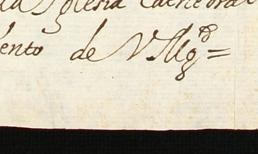 la Yglesia Cathedral
ento de V. Mg.d =